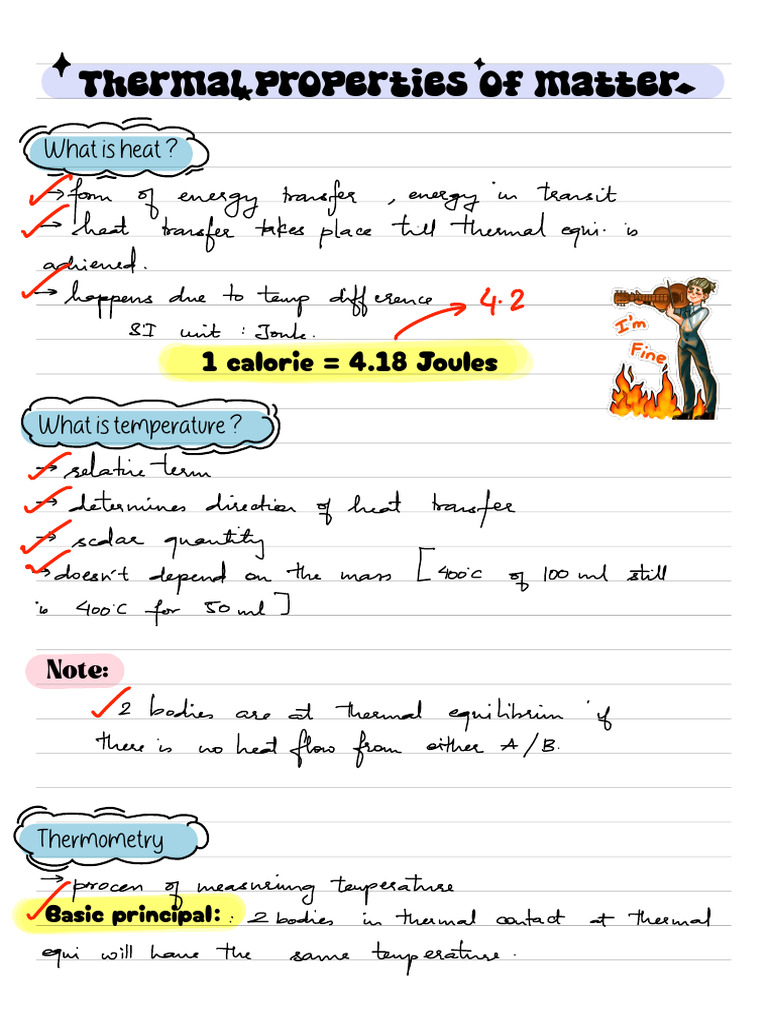 Thermal Properties of Matter
What is heat ?
→ form of energy transfer , energy in transit
→ heat transfer takes place till thermal equi. is
achieved.
→ happens due to temp difference → 4.2
SI unit : Joule.
I'm
Fine
1 calorie = 4.18 Joules
What is temperature ?
→ relative term
→ determines direction of heat transfer
→ scalar quantity
→ doesn't depend on the mass [400°C of 100 ml still
is 400°C for 50 ml]
Note:
2 bodies are at thermal equilibrium if
there is no heat flow from either A/B.
Thermometry
→ process of measuring temperature
Basic principal: : 2 bodies in thermal contact at thermal
equi will have the same temperature.